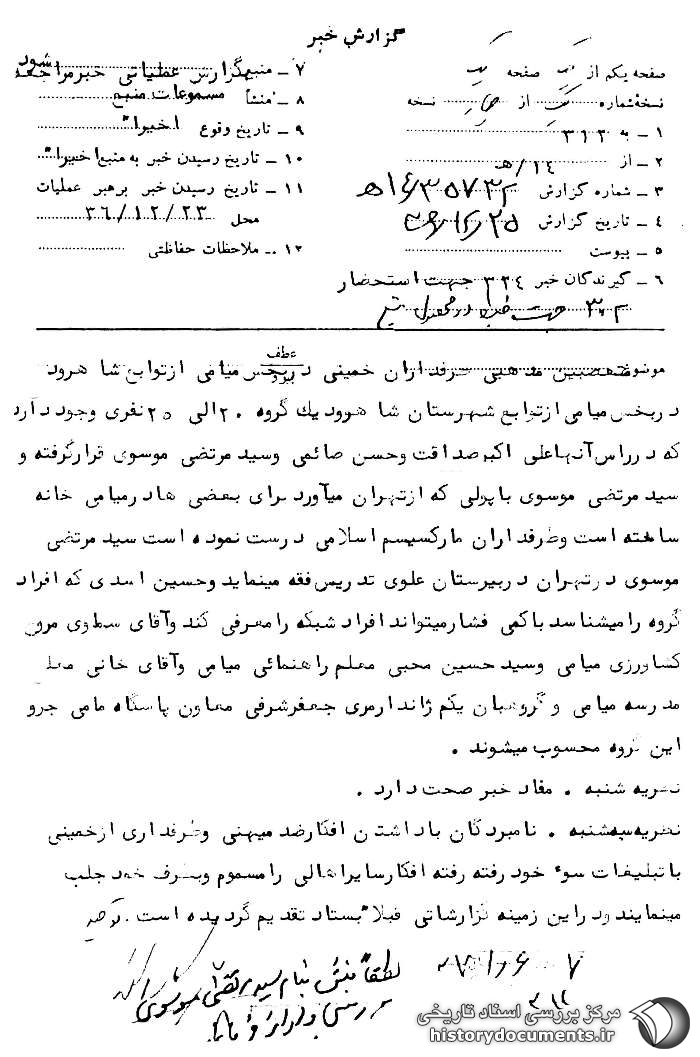 گزارش خبر
صفحه یکم از یک صفحه یک
نسخهٔ شماره یک از چهار نسخه
۱ ـ به ۳۱۲
۲ ـ از ۱۴/هـ
۳ ـ شماره گزارش
۴ ـ تاریخ گزارش
۵ ـ پیوست
۶ ـ گیرندگان خبر ۳۳۴ جهت استحضار
۷ ـ منبع بگزارش عملیاتی خبر مراجعه شود
۸ ـ منشأ مسموعات منبع
۹ ـ تاریخ وقوع اخیرا"
۱۰ ـ تاریخ رسیدن خبر به منبع اخیرا"
۱۱ ـ تاریخ رسیدن خبر برهبر عملیات
محل ۳۶/۱۲/۲۳
۱۲ ـ ملاحظات حفاظتی
موضوع متعصبین مذهبی طرفداران خمینی در بخش میامی ازتوابع شاهرود
عطف
پیرو
در بخش میامی ازتوابع شهرستان شاهرود یك گروه ۲۰ الی ۲۵ نفری وجود دارد
که درراس آنها علی اکبر صداقت وحسن صائمی وسید مرتضی موسوی قرار گرفته و
سید مرتضی موسوی با پولی که ازتهران میآورد برای بعضی ها در میامی خانه
ساخته است وطرفداران مارکسیسم اسلامی درست نموده است سید مرتضی
موسوی درتهران دربیرستان علوی تدریس فقه مینماید وحسین اسدی که افراد
گروه را میشناسد با کمی فشار میتواند افراد شبکه را معرفی کند وآقای سطوی مروج
کشاورزی میامی وسید حسین محبی معلم راهنمائی میامی وآقای خانی معلم
مدرسه میامی وگروهبان یکم ژاندارمری جعفر شرفی معاون پاسگاه مامی جزو
این گروه محسوب میشوند .
نظریه شنبه . مفاد خبر صحت دارد .
نظریه سه شنبه . نامبردگان با داشتن افکار ضد میهنی وطرفداری ازخمینی
با تبلیغات سوء خود رفته رفته افکار سایر اهالی را مسموم وبطرف خود جلب
مینمایند ودر این زمینه گزارشاتی قبلا" بستاد تقدیم گردیده است . توجیه
لطفاً بنام سید مرتضی موسوی
۳۱۲
مرکز بررسی اسناد تاریخی
historydocuments.ir